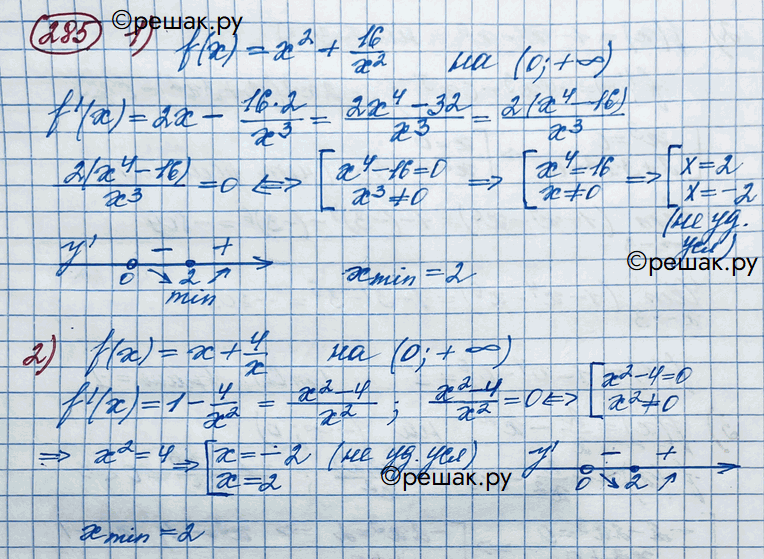 ©решак.ру
285 1) f(x) = x² + 16/x² на (0; +∞)
f'(x) = 2x − 16·2/x³ = 2x⁴ − 32/x³ = 2(x⁴ − 16)/x³
2(x⁴ − 16)/x³ = 0 ⟺ [x⁴ − 16 = 0 x³ ≠ 0 ⟹ [x⁴ = 16 x ≠ 0 ⟹ [x = 2 x = −2
(не уд. усл)
©решак.ру
y' − +
0 ↘ 2 ↗
min
x min = 2
2) f(x) = x + 4/x на (0; +∞)
f'(x) = 1 − 4/x² = x² − 4/x² ; x² − 4/x² = 0 ⟺ [x² − 4 = 0 x² ≠ 0
⟹ x² = 4 ⟹ [x = −2 (не уд. усл) x = 2
©решак.ру
y' − +
0 ↘ 2 ↗
x min = 2